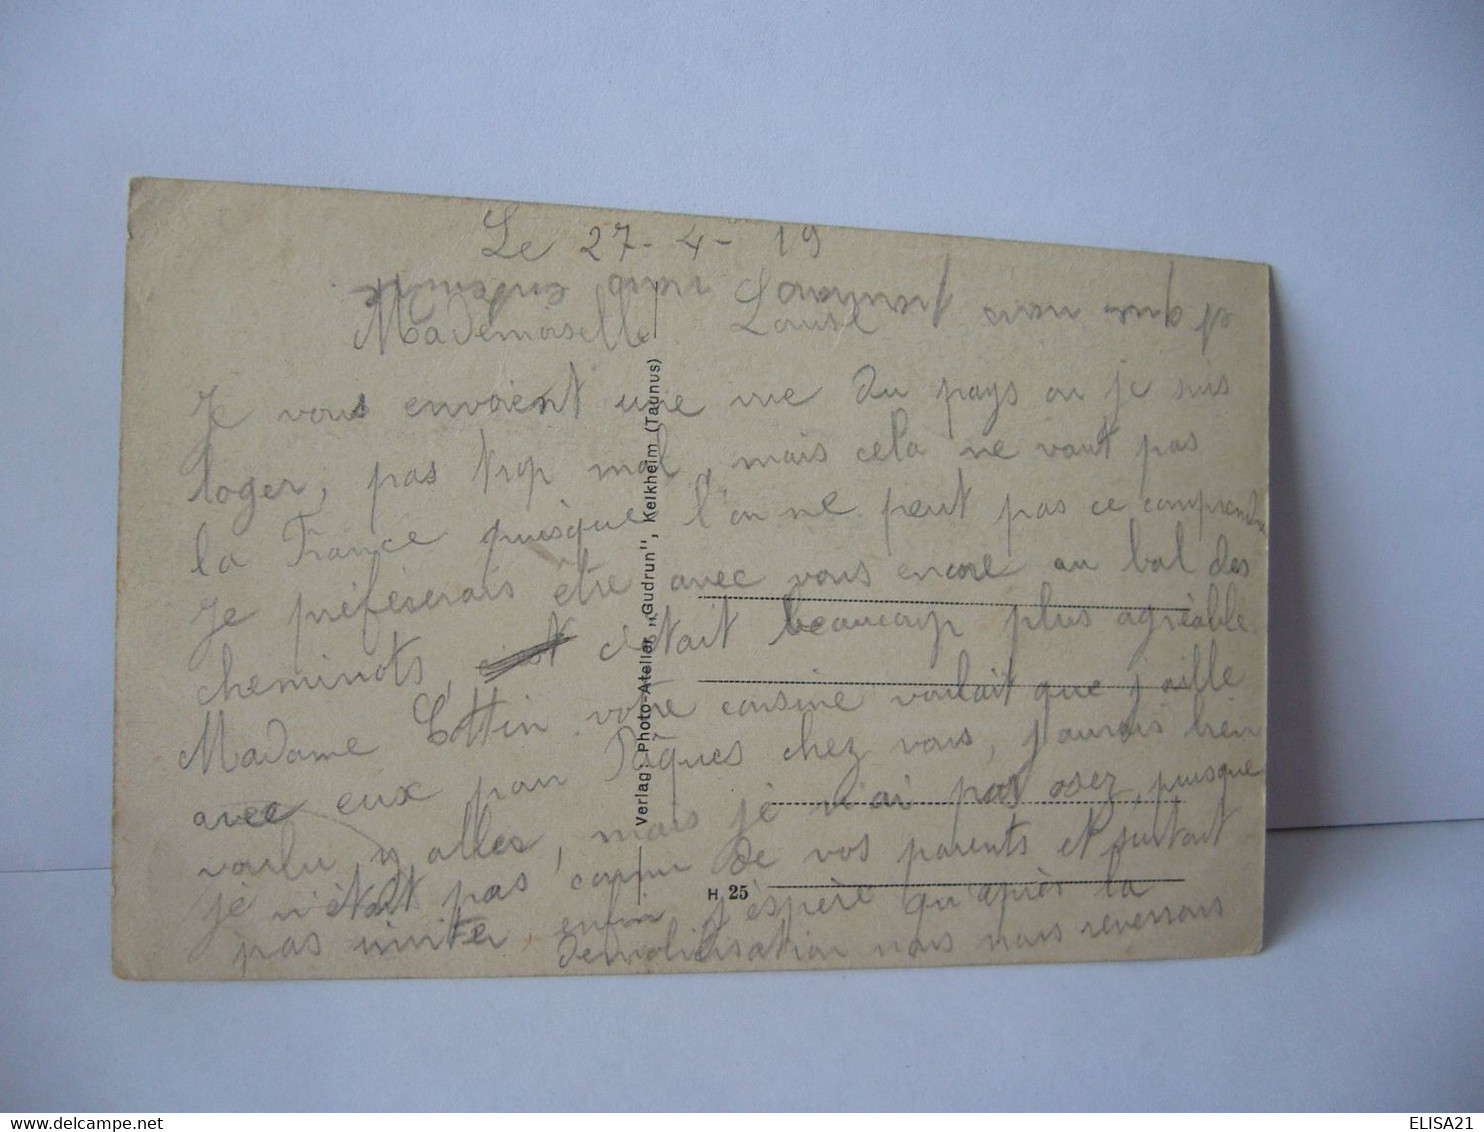 Le 27-4-19
Mademoiselle Louise
Je vous envoient une vue du pays ou je suis
loger, pas trop mal, mais cela ne vaut pas
la France puisque l'on ne peut pas ce comprendre
Je préfèserais etre avec vous encore au bal des
cheminots, c'était beaucoup plus agréable.
Madame Cottin votre cousine voulait que j'aille
avec eux pour Pâques chez vous, j'aurais bien
voulu y alles, mais je n'ai pas osez, puisque
je n'était pas connu de vos parents et surtout
pas inviter, enfin j'espère qu'après la
démobilisation nous nous reverrons
et que nous
Verlag: Photo-Atelier „Gudrun", Kelkheim (Taunus)
H 25
ELISA21